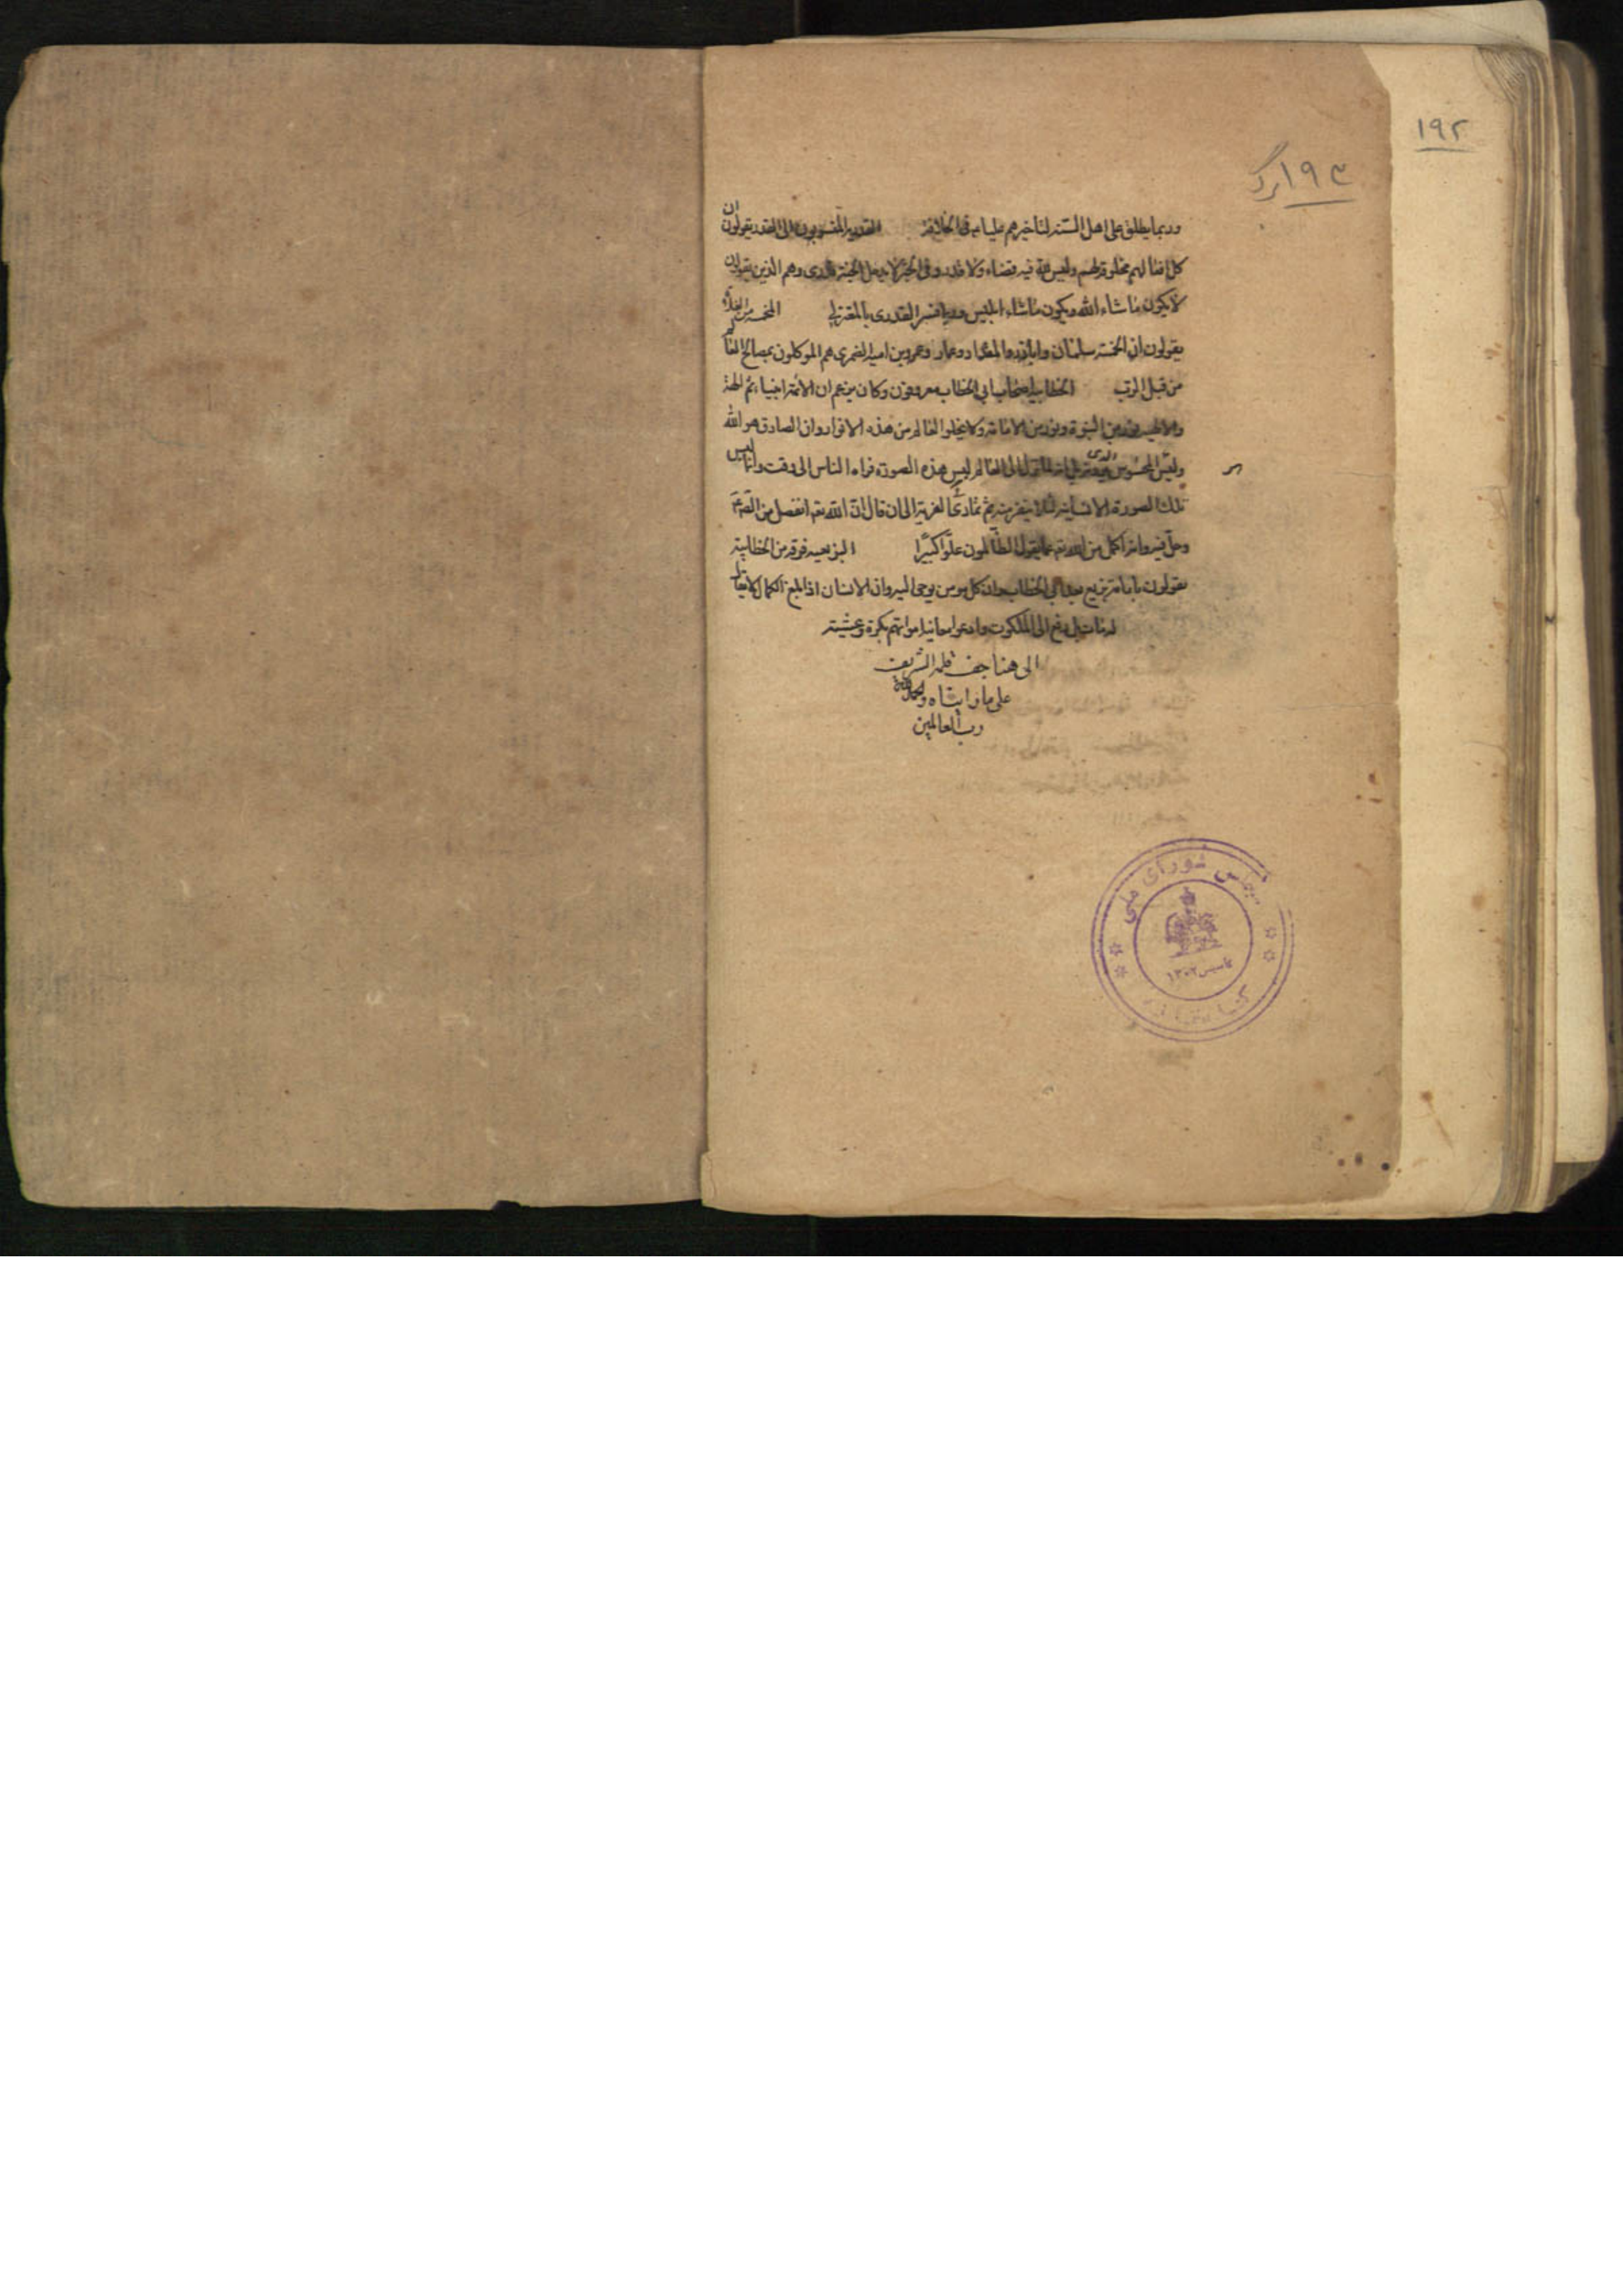 ١٩٢
١٩٣
وربما يطلق على اهل السنة لتاخيرهم عليا ع في الخلافة القدرية المنسوبون الى القدر يقولون ان
كل افعالهم مخلوقة لهم وليس لله فيه قضاء ولا قدر وفي الخبر لا يدخل الجنة قدرى وهم الذين يقولون
لا يكون ما شاء الله ويكون ما شاء ابليس وربما فسر القدرى بالمعتزلي المخمسة من الغلاة
يقولون ان الخمسة سلمان وابا ذر والمقداد وعمار وعمرو بن امية الضمرى هم الموكلون بمصالح العالم
من قبل الرب الخطابية اصحاب ابي الخطاب معروفون وكان يزعم ان الائمة انبياء ثم الهة
والالهية نور من النبوة ونور من الامامة ولا يخلو العالم من هذه الانوار وان الصادق هو الله
وليس المحسوس الذى يرونه بل انه لما نزل الى العالم لبس هذه الصورة فراه الناس الى وقت وانما لبس
تلك الصورة الانسانية لئلا ينفر منه ثم تمادى الى ان قال ان الله تعه انفصل من الصادق
وحل فيه وانه اكمل من الله تعه عما يقول الظالمون علوا كبيرا البزيعيه فرقه من الخطابية
يقولون بامامة بزيع بعد ابي الخطاب وان كل مومن يوحى اليه وان الانسان اذا بلغ الكمال لا يقال
له مات بل رفع الى الملكوت وادعوا معاينة امواتهم بكرة وعشية
الى هنا جف قلمه الشريف
على ما رايناه والحمد لله
رب العالمين
مجلس شوراى ملى
تاسيس ١٣٠٢
كتابخانه